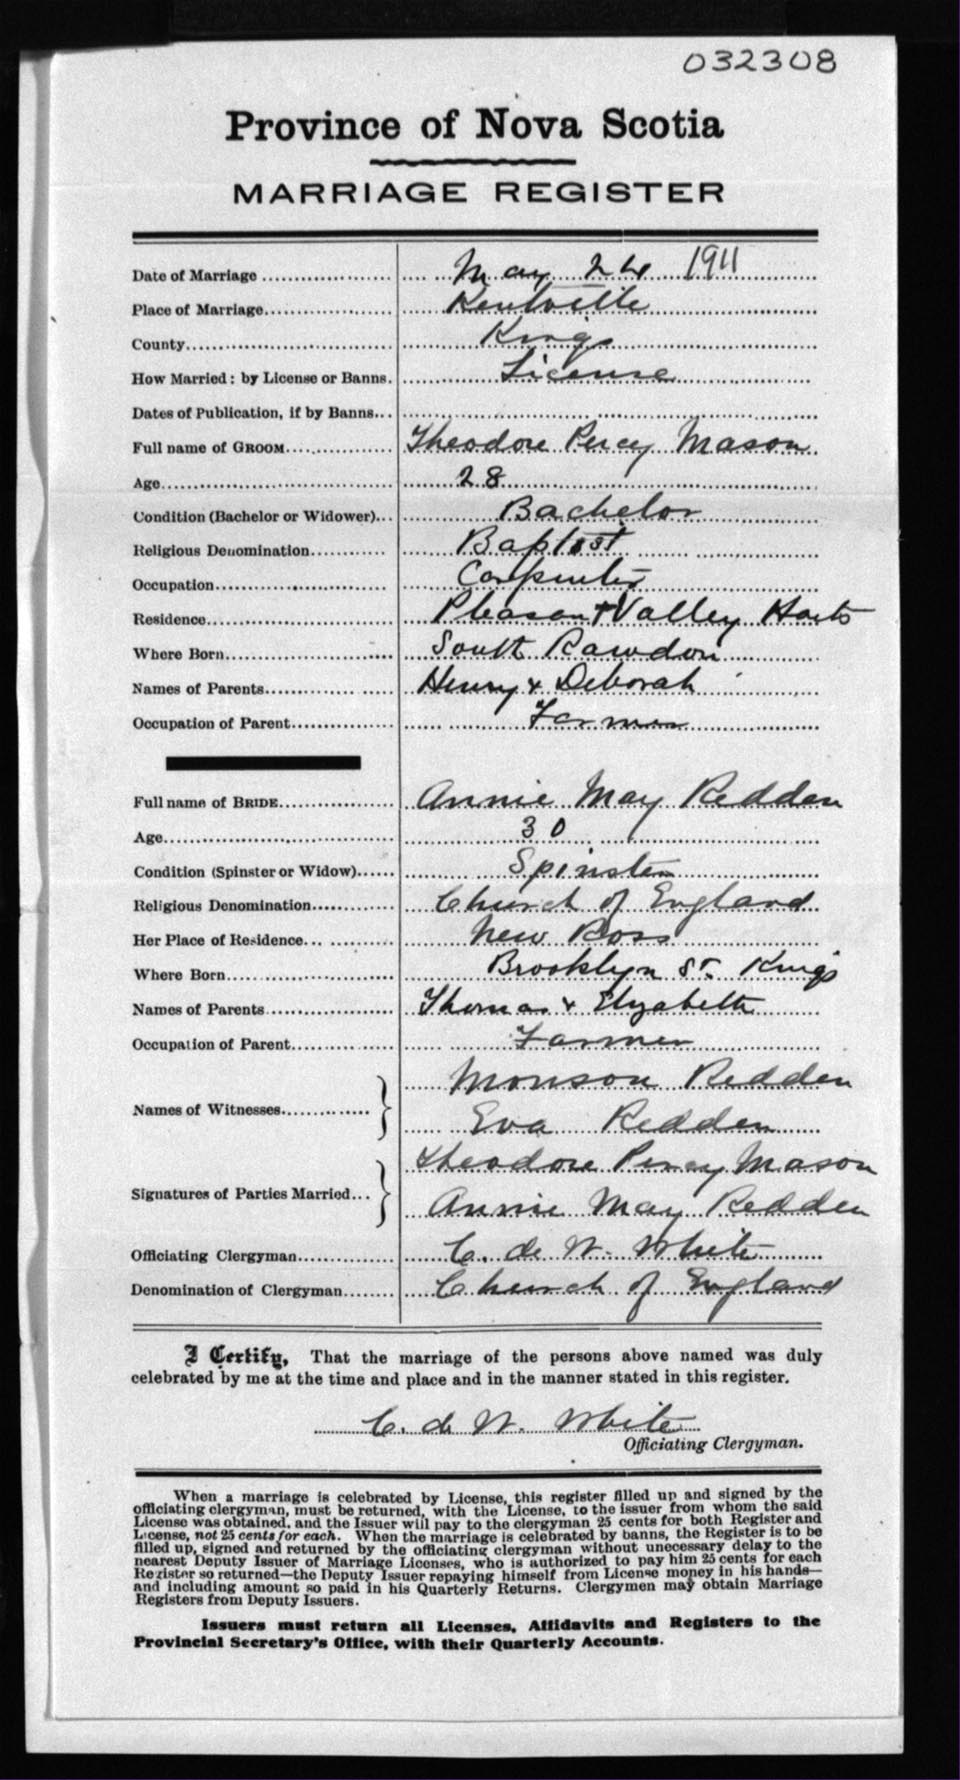 032308
Province of Nova Scotia
MARRIAGE REGISTER
Date of Marriage May 24 1911
Place of Marriage Kentville
County Kings
How Married: by License or Banns. License
Dates of Publication, if by Banns
Full name of GROOM Theodore Percy Mason
Age 28
Condition (Bachelor or Widower) Bachelor
Religious Denomination Baptist
Occupation Carpenter
Residence Pleasant Valley Hants
Where Born South Rawdon
Names of Parents Henry & Deborah
Occupation of Parent Farmer
Full name of BRIDE Annie May Redden
Age 30
Condition (Spinster or Widow) Spinster
Religious Denomination Church of England
Her Place of Residence New Ross
Where Born Brooklyn St. Kings
Names of Parents Thomas & Elizabeth
Occupation of Parent Farmer
Names of Witnesses Monson Redden
Eva Redden
Signatures of Parties Married Theodore Percy Mason
Annie May Redden
Officiating Clergyman C. de W. White
Denomination of Clergyman Church of England
I Certify, That the marriage of the persons above named was duly
celebrated by me at the time and place and in the manner stated in this register.
C. de W. White
Officiating Clergyman.
When a marriage is celebrated by License, this register filled up and signed by the
officiating clergyman, must be returned, with the License, to the issuer from whom the said
License was obtained, and the Issuer will pay to the clergyman 25 cents for both Register and
License, not 25 cents for each. When the marriage is celebrated by banns, the Register is to be
filled up, signed and returned by the officiating clergyman without unnecessary delay to the
nearest Deputy Issuer of Marriage Licenses, who is authorized to pay him 25 cents for each
Register so returned—the Deputy Issuer repaying himself from License money in his hands—
and including amount so paid in his Quarterly Returns. Clergymen may obtain Marriage
Registers from Deputy Issuers.
Issuers must return all Licenses, Affidavits and Registers to the
Provincial Secretary's Office, with their Quarterly Accounts.